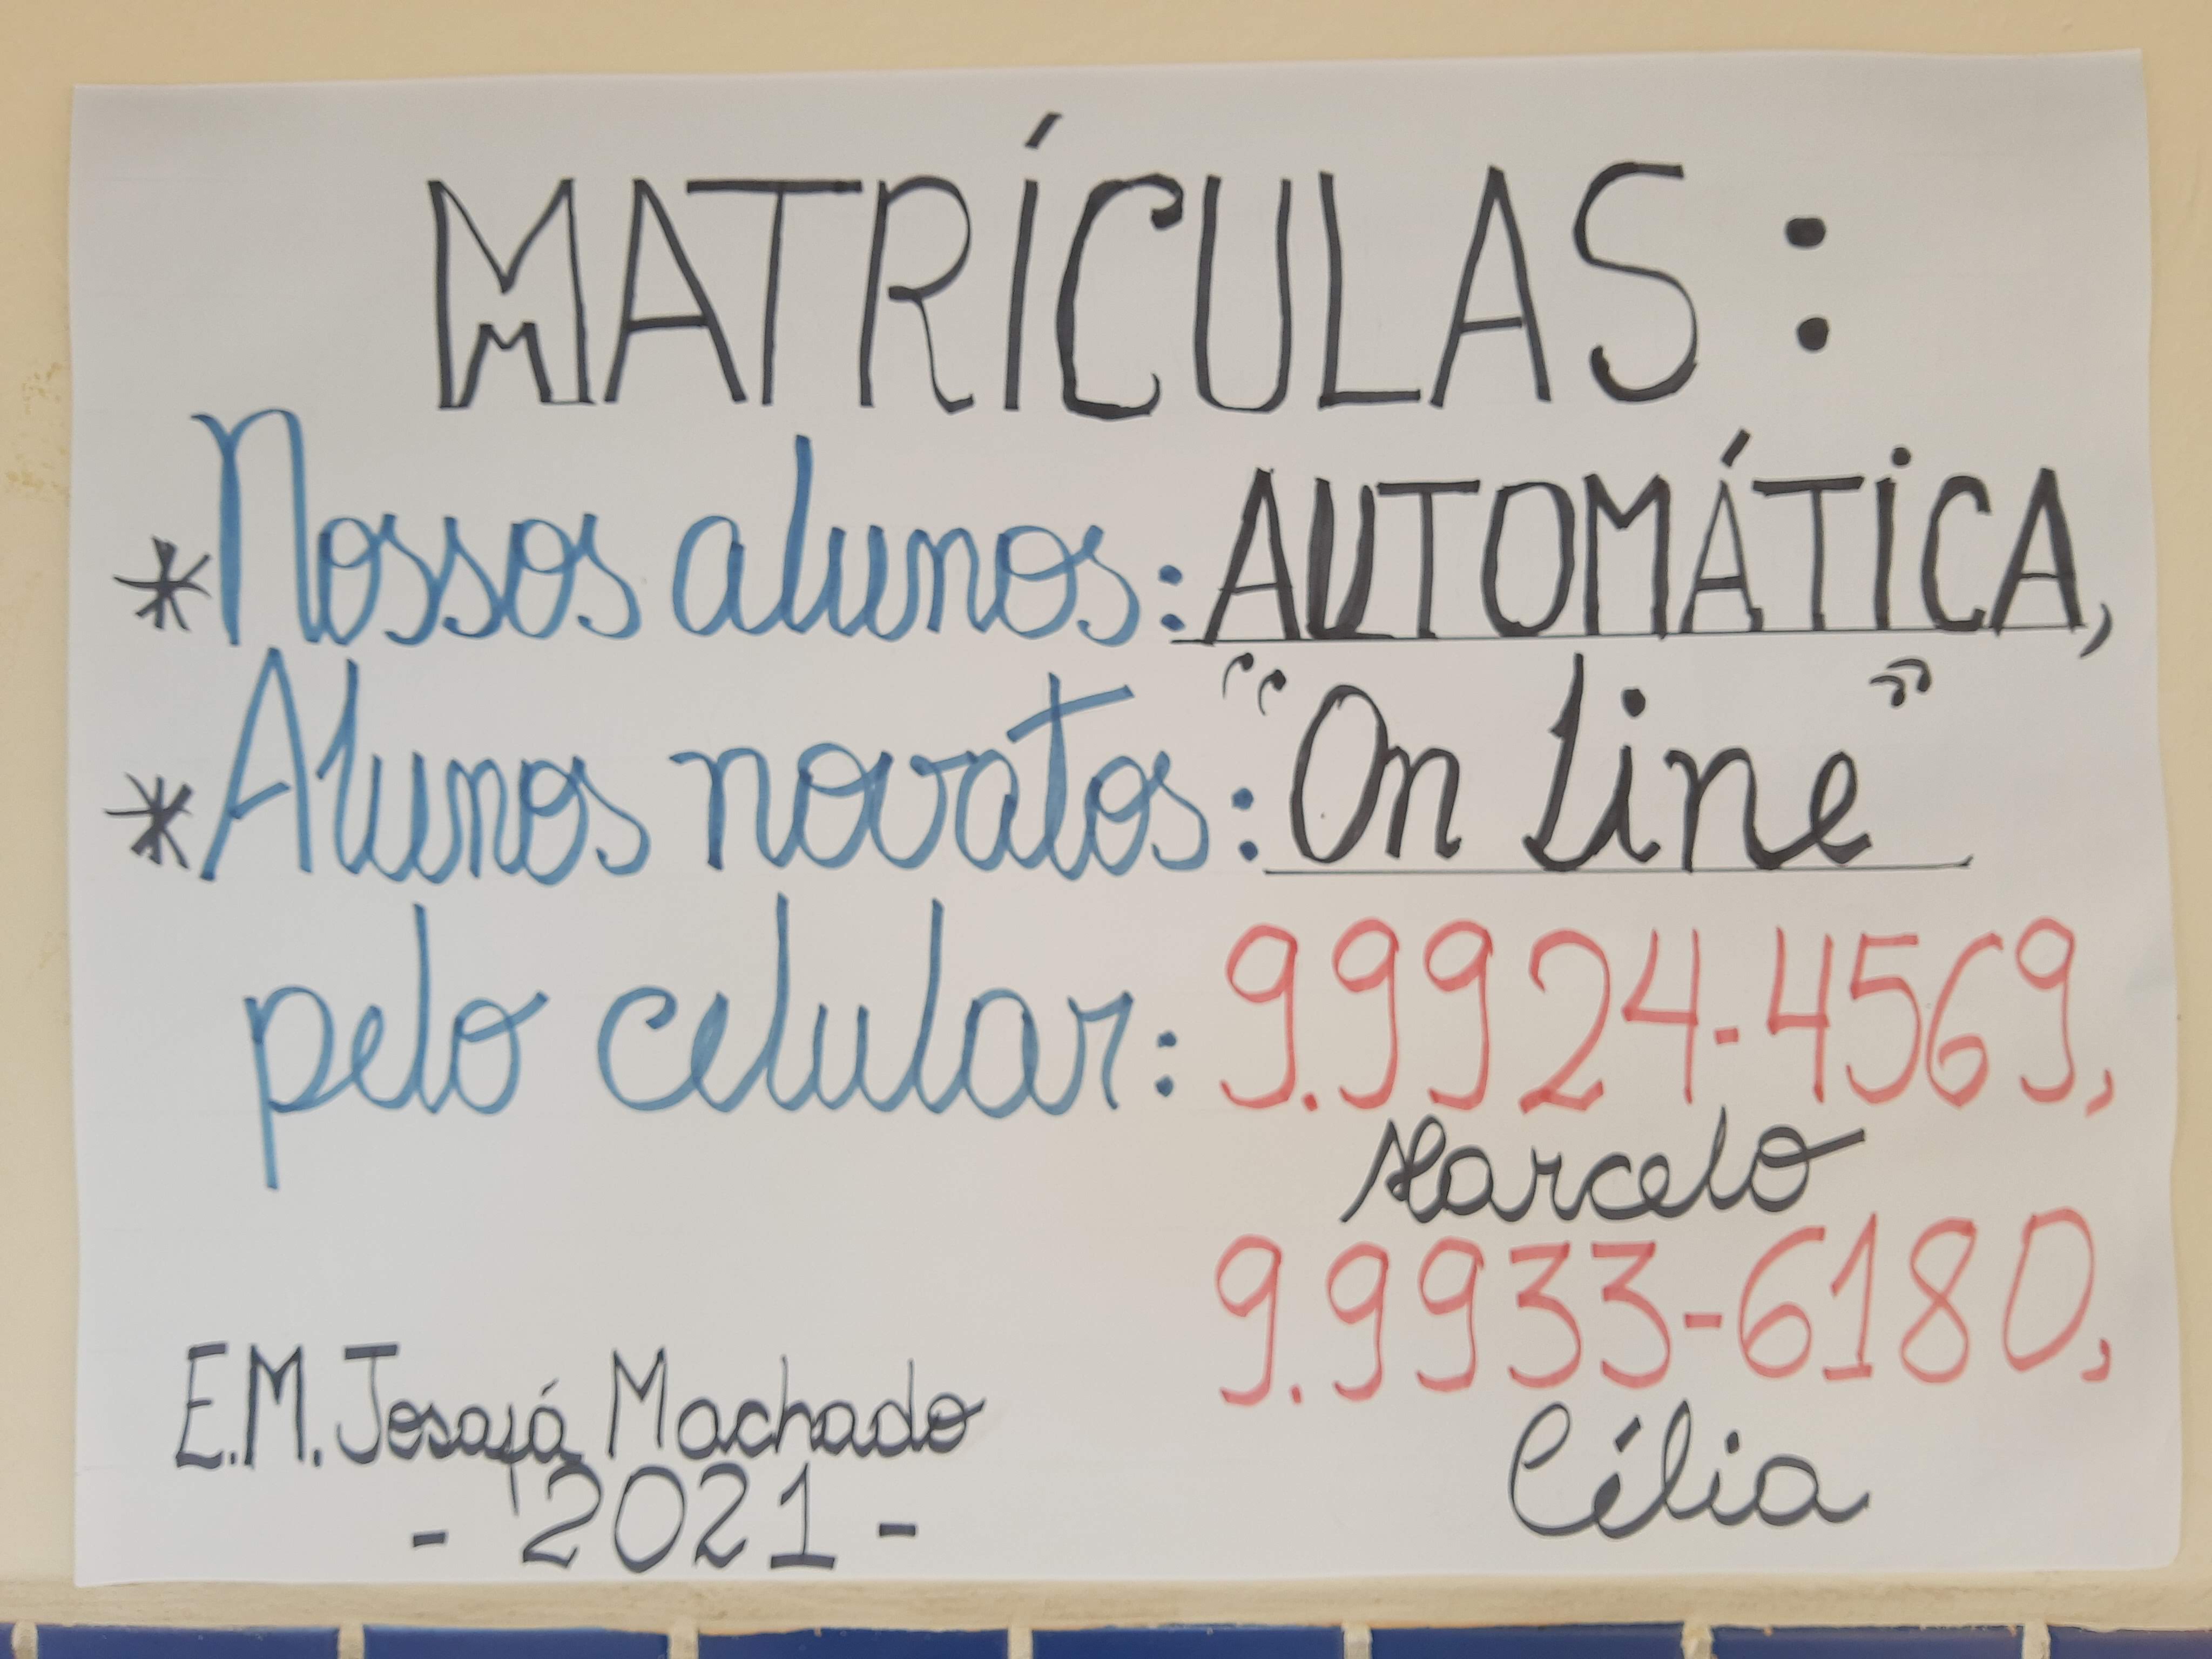 MATRÍCULAS:
* Nossos alunos: AUTOMÁTICA,
* Alunos novatos: "On Line"
pelo celular: 9.9924-4569,
Marcelo
9.9933-6180,
Célia
E.M. Josajá Machado
- 2021 -